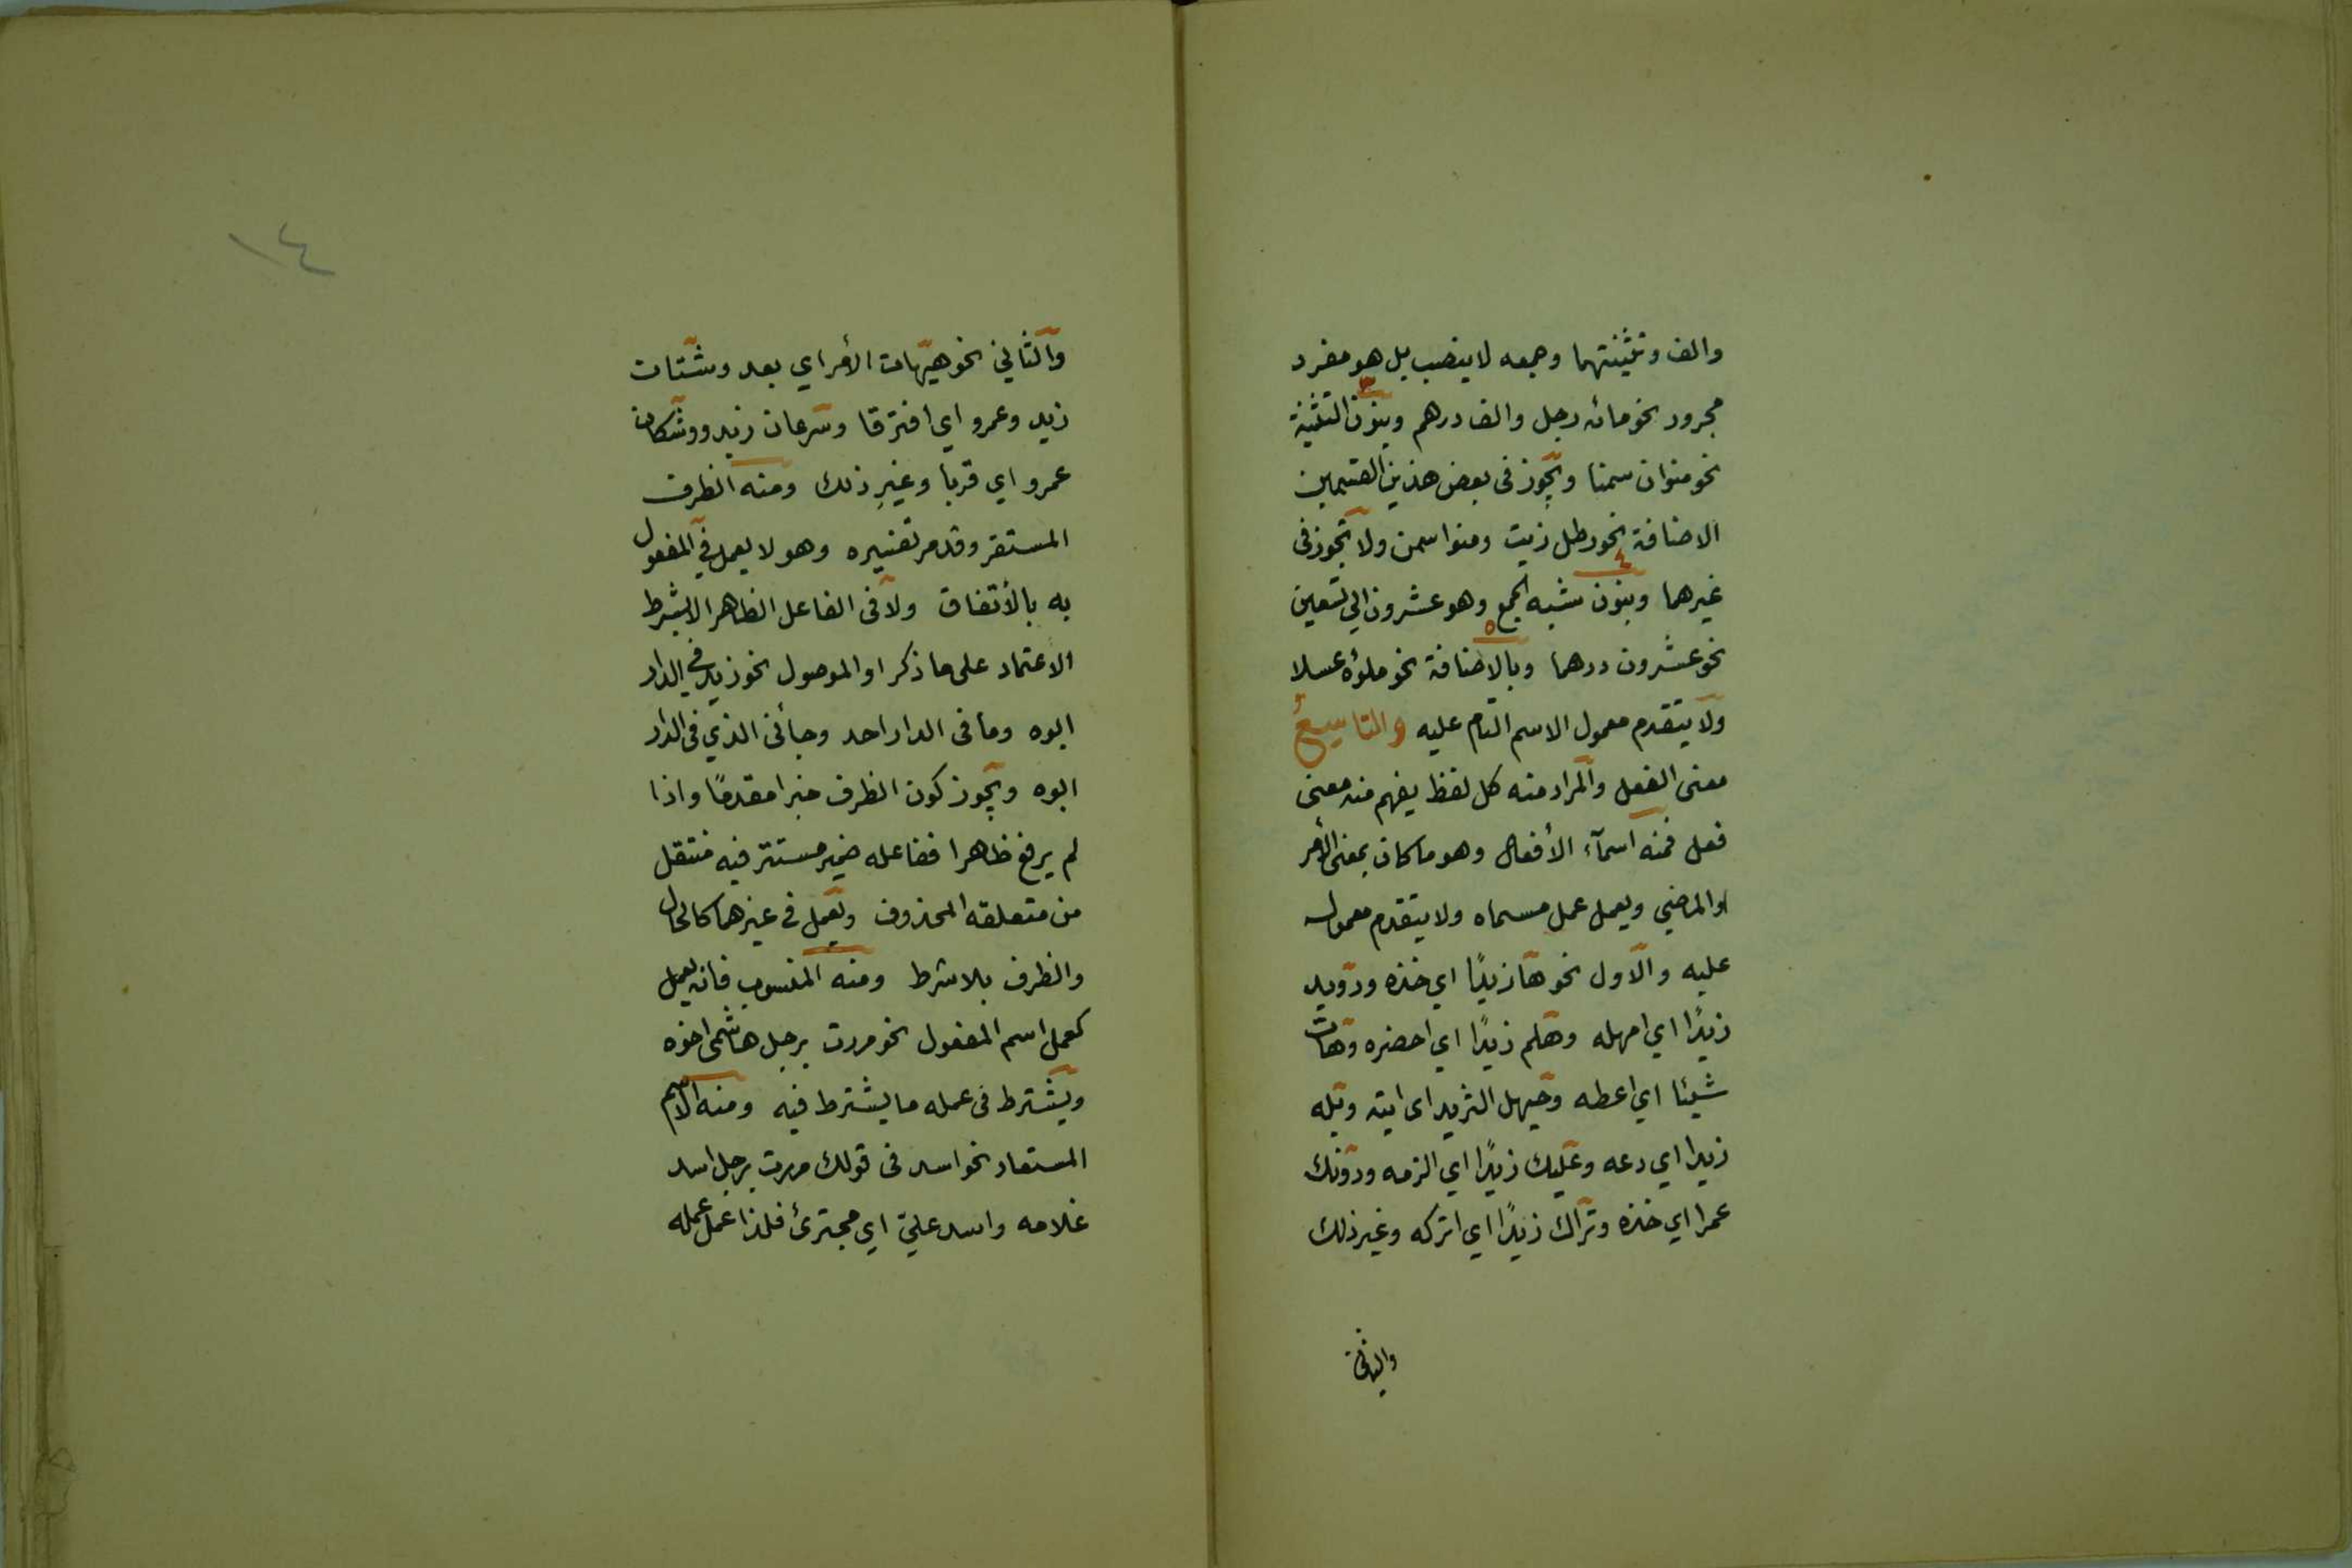 والف وتثنيتهما وجمعه لا ينصب بل هو مفرد
مجرور نحو مائه رجل والف درهم وبنون التثنية
٣
نحو منوان سمنا ويجوز فى بعض هذين القسمين
الاضافة نحو رطل زيت ومنوا سمن ولا تجوز فى
٤
غيرهما وبنون شبه الجمع وهو عشرون الي تسعين
٥
نحو عشرون درهما وبالاضافة نحو ملؤه عسلا
ولا يتقدم معمول الاسم التام عليه والتاسِعُ
معنى الفعل والمراد منه كل لفظ يفهم منه معنى
فعل فمنه اسمآء الأفعال وهو ما كان بمعنى الأمر
او الماضي ويعمل عمل مسماه ولا يتقدم معموله
عليه والاول نحو ها زيدًا اي خذه ورويد
زيدًا اي امهله وهلم زيدًا اي احضره وهات
شيئا اي اعطه وحيهل الثريد اى ايته وبله
زيدا اي دعه وعليك زيدًا اي الزمه ودونك
عمرا اي خذه وتراك زيدًا اي اتركه وغير ذلك
والثاني
١٤
والثاني نحو هيهات الأمر اي بعد وشتات
زيد وعمرو اي افترقا وسرعان زيد ووشكان
عمرو اي قربا وغيرِ ذلك ومنه الظرف
المستقر وقد مر تفسيره وهو لا يعمل في المفعول
به بالأتفاق ولا فى الفاعل الظاهر الا بشرط
الاعتماد على ما ذكر او الموصول نحو زيد في الدار
ابوه وما فى الدار احد وجأنى الذي فى الدار
ابوه ويجوز كون الظرف خبرا مقدمًا واذا
لم يرفع ظاهرا ففاعله ضمير مستتر فيه منتقل
من متعلقه المحذوف ويعمل فى غيرهما كالحال
والظرف بلا شرط ومنه المنسوب فانه يعمل
كعمل اسم المفعول نحو مررت برجل هاشمى اخوه
ويشترط فى عمله ما يشترط فيه ومنه الاسم
المستعار نحو اسد فى قولك مررت برجل اسد
غلامه واسد عليّ اي مجترئ فلذا عمل عمله